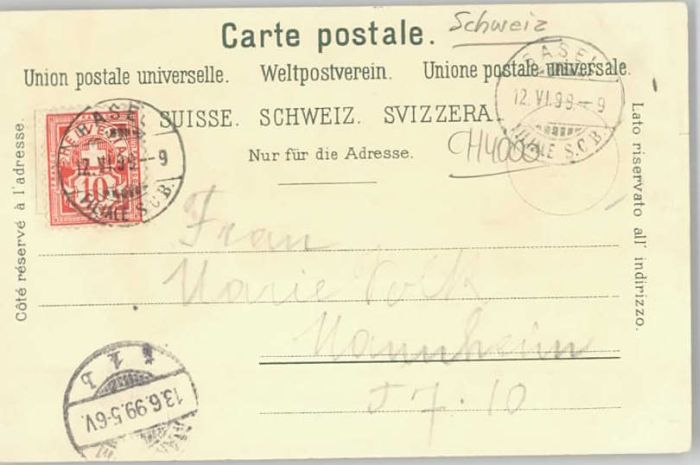 Schweiz
Carte postale.
Union postale universelle. Weltpostverein. Unione postale universale.
SUISSE. SCHWEIZ. SVIZZERA.
Nur für die Adresse.
CH4000
Côté réservé à l'adresse.
Lato riservato all' indirizzo.
BASEL
12.VI.99.–9
FILIALE S.C.B.
HELVETIA
10
BASEL
12.VI.99.–9
FILIALE S.C.B.
Frau
Marie Volk
Mannheim
J 7. 10
13.6.99.5-6V.
1 b